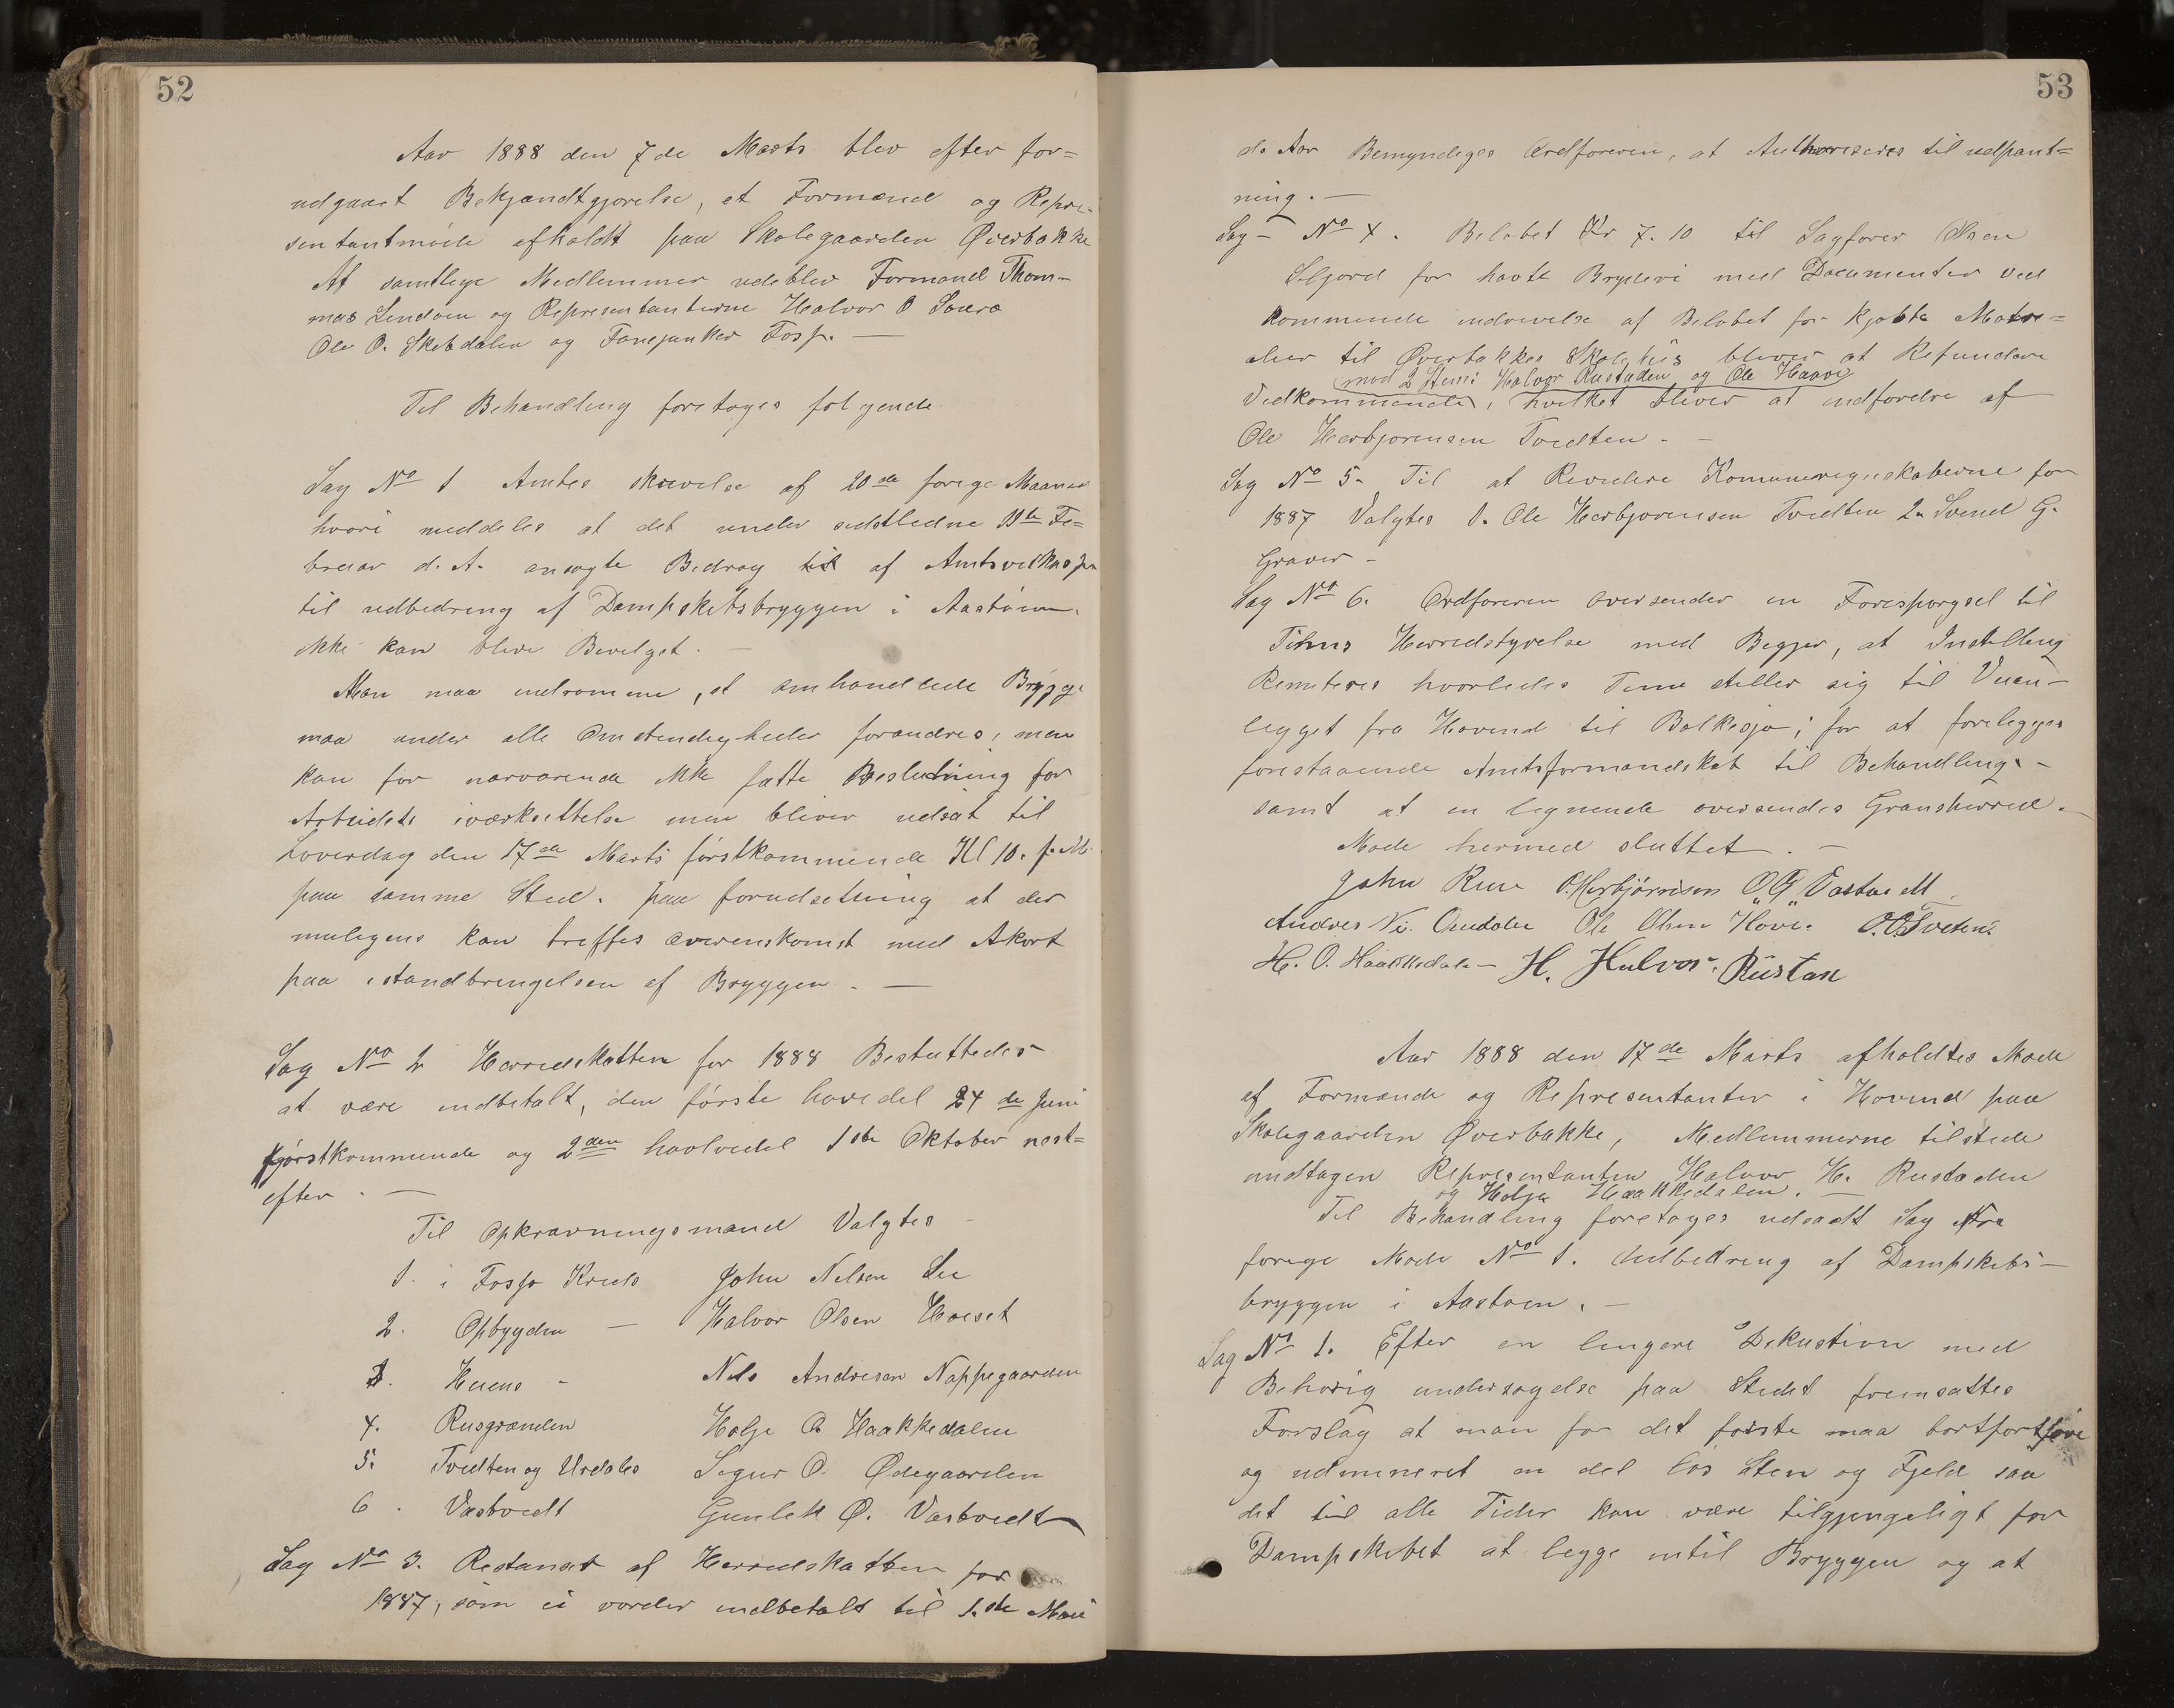 52
Aar 1888 den 7de Marts blev efter for=
udgaaet Bekjandtgjorelse, et Formænd og Repre-
sentantmöde afholdt paa Skolegaarden Øverbakke
Af samtlige Medlemmer udeblev Formand Thom-
mas Lendoen og Representanterne Halvor O
Ole O. Skebdalen og Fanejunker Foss.
Til Behandling foretoges folgende.
Sag No 1 Amtes skrivelse af 20de forige Maaned
hvori meddeles at det under sidstledne 11te Fe=
bruar d. A. ansogte Bidrag til af Amtsveikassen
til udbedring af Dampskibsbryggen i
ikke kan blive Bevilget.
Man maa indromme, at omhandlede Brygge
maa under alle Omstendigheder forandres, men
kan for nærværende ikke fatte Beslutning for
Arbeidets iværksettelse men bliver udsat til
Loverdag den 17de Marts förstkommende Kl 10. f. M.
paa samme Sted. paa forudsetning at der
muligens kan treffes overenskomst med Akort
paa istandbringelsen af Bryggen.
Sag No 2 Herredskatten for 1888 Besluttedes
at være indbetalt, den förste havedel 24de Juni
förstkommende og 2den havlvedel 1ste Oktober nest=
efter.
Til Opkravningsmand Valgtes
1. i Fossp Kreds John Nilsen Lie
2. Opbygden — Halvor Olsen Hoeset
3. Huens - Nils Andresen Nappegaarden
4. Rusgrænden Holje O. Haakkedalen
5. Tvedten og Urdales Segur O. Ødegaarden
6. Vasbvedt Gunlek Ø. Vasbvedt
Sag No 3. Restanset af Herredskatten for
1887, som ei vorder indbetalt til 1.ste Mai
53
ds Aar Bemyndiges Ordforeren, at Authoriseres til udpant=
ning.
Sag No 4. Belobet Kr 7.10 til Sagforer Olsen
Seljord for havte Bryderi med Documenter ved
kommende inddrivelse af Belobet for kjobte Matri=
alier til Øverbakkes Skolehus bliver at Refundere
mod 2 Stem: Halvor Rustaden og Ole Haave
Vedkommende, hvilket bliver at indfordre af
Ole Herbjornsen Tvedten.
Sag No 5. Til at Revidere Komuneregnskaberne for
1887 Valgtes 1. Ole Herbjornsen Tvedten 2. Svend G.
Graver
Sag No 6. Ordforeren oversender en Foresporgsel til
Tinns Herredstyrelse med Begjer, at Instelling
Remiteres hvorledes Tinn stiller sig til Veian-
legget fra Hovind til Bolkesjo, for at forelegges
forestaaende Amtsformandskab til Behandling.
samt at en lignende oversendes Gransherred.
Mode hermed sluttet.
John Rue O. Herbjörnsen O. G. Vastveit
Andres Ni. Ole Olsen Hove. O. O. Tveten.
H. O. Haakkedalen H. Halvor. Rustan
Aar 1888 den 17de Marts afholdtes Mode
af Formænde og Representanter i Hovind paa
Skolegaarden Øverbakke, Medlemmerne tilstede
undtagen Representanten Halvor H. Rustaden
og Holje Haakkedalen.
Til Behandling foretoges udsadt Sag fra
forige Mode No 1. Udbedring af Dampskibs-
bryggen i
Sag No 1. Efter en lengere Diskustion med
Behorig undersogelse paa Stedet fremsattes
Forslag at man for det forste maa bortfortföre
og udmineret en del lös Sten og Fjeld saa
det til alle Tider kan være tilgjengeligt for
Dampskibet at legge intil Bryggen og at